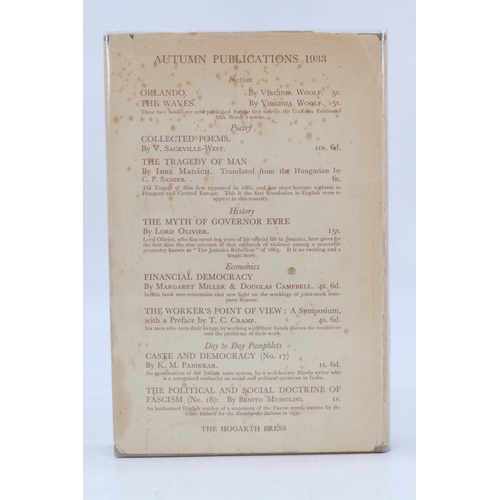 AUTUMN PUBLICATIONS 1933
Fiction
ORLANDO. By Virginia Woolf. 5s.
THE WAVES. By Virginia Woolf. 5s.
These two books are now published for the first time in the Uniform Edition of
Mrs. Woolf's works.
Poetry
COLLECTED POEMS.
By V. Sackville-West. 10s. 6d.
THE TRAGEDY OF MAN
By Imre Madách. Translated from the Hungarian by
C. P. Sanger. 6s.
The Tragedy of Man first appeared in 1861, and has since become a classic in
Hungary and Central Europe. This is the first translation in English verse to
appear in this country.
History
THE MYTH OF GOVERNOR EYRE
By Lord Olivier. 15s.
Lord Olivier, who has spent ten years of his official life in Jamaica, here gives for
the first time the true account of that outbreak of violence among a peaceable
peasantry known as "The Jamaica Rebellion" of 1865. It is an exciting and a
tragic story.
Economics
FINANCIAL DEMOCRACY
By Margaret Miller & Douglas Campbell. 4s. 6d.
In this book two economists cast new light on the workings of joint-stock com-
pany finance.
THE WORKER'S POINT OF VIEW: A Symposium,
with a Preface by T. C. Cramp. 4s. 6d.
Six men who earn their livings by working with their hands discuss the conditions
and the problems of their work.
Day to Day Pamphlets
CASTE AND DEMOCRACY (No. 17)
By K. M. Panikkar. 1s. 6d.
An examination of the Indian caste system, by a well-known Hindu writer who
is a recognized authority on social and political questions in India.
THE POLITICAL AND SOCIAL DOCTRINE OF
FASCISM (No. 18): By Benito Mussolini. 1s.
An authorized English version of a statement of the Fascist creed, written by the
Duce himself for the Enciclopedia Italiana in 1932.
THE HOGARTH PRESS